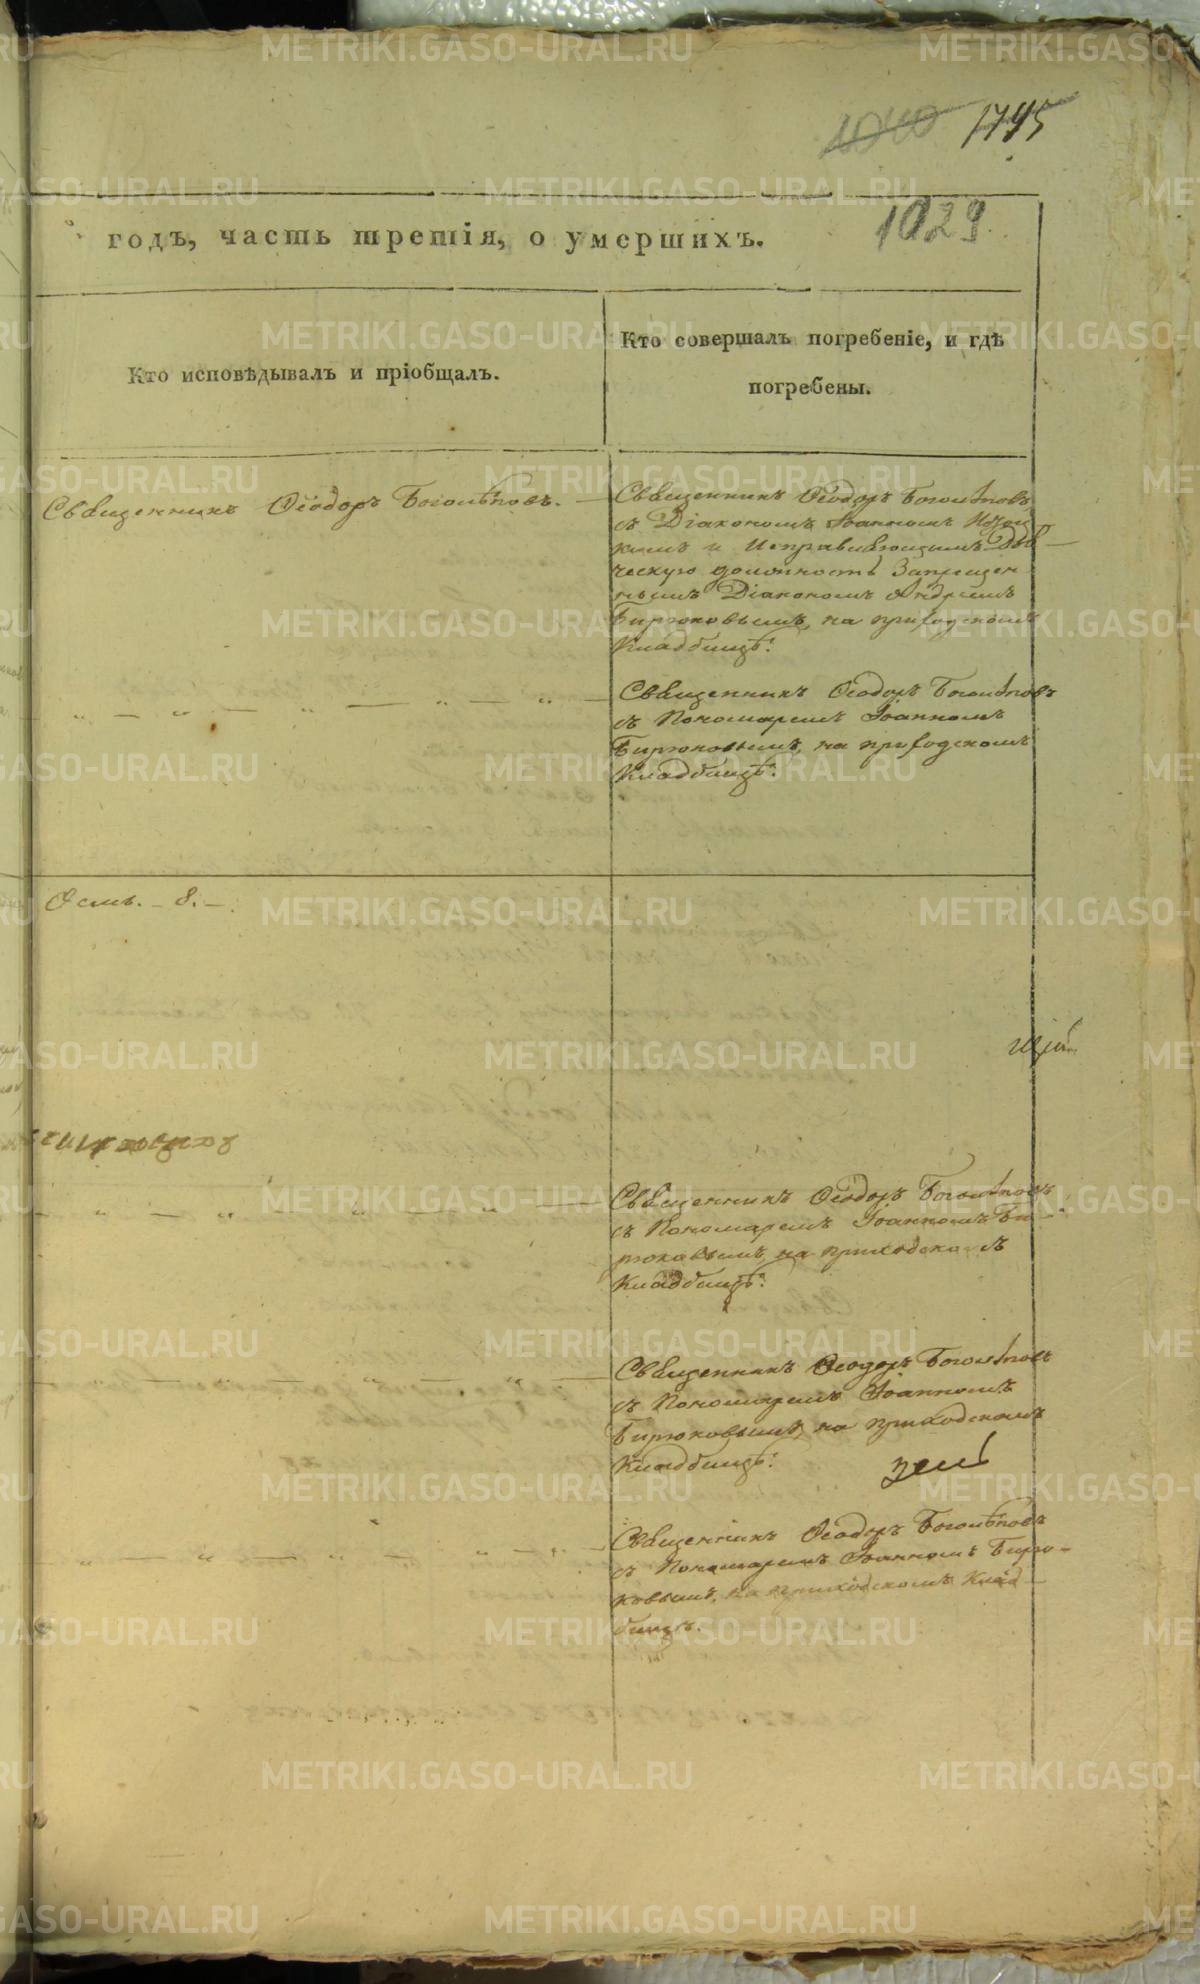 1040 1745
1029
годъ, часть третія, о умершихъ.
Кто исповѣдывалъ и пріобщалъ.
Кто совершалъ погребеніе, и гдѣ
погребены.
Священникъ Ѳеодоръ Боголѣповъ.
Священникъ Ѳеодоръ Боголѣповъ
съ Діакономъ Іоанномъ
и Исправляющимъ Дья-
ческую должность Запрещен
нымъ Діакономъ Андреемъ
Бирюковымъ, на приходскомъ
Кладбищѣ.
Священникъ Ѳеодоръ Боголѣповъ
съ Пономаремъ Іоанномъ
Бирюковымъ, на приходскомъ
Кладбищѣ.
Осмь. - 8. -
Священникъ Ѳеодоръ Боголѣповъ
съ Пономаремъ Іоанномъ Би-
рюковымъ, на приходскомъ
Кладбищѣ.
Священникъ Ѳеодоръ Боголѣповъ
съ Пономаремъ Іоанномъ
Бирюковымъ, на приходскомъ
Кладбищѣ.
Священникъ Ѳеодоръ Боголѣповъ
съ Пономаремъ Іоанномъ Бирю-
ковымъ, на приходскомъ Клад-
бищѣ.
METRIKI.GASO-URAL.RU